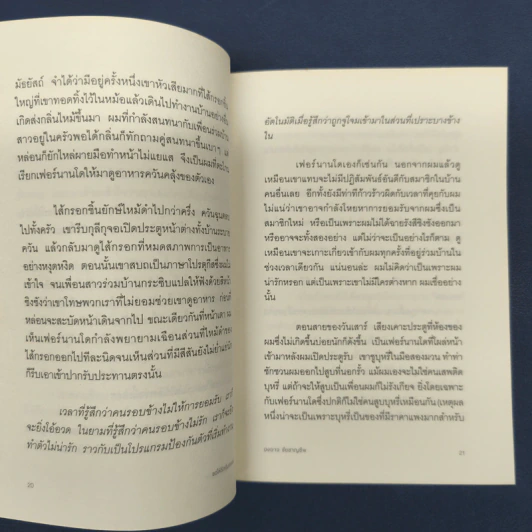 มัธยัสถ์ จำได้ว่ามีอยู่ครั้งหนึ่งเขาหัวเสียมากที่ไส้กรอกชิ้น
ใหญ่ที่เขาทอดทิ้งไว้ในหม้อแล้วเดินไปทำงานบ้านอย่างอื่น
เกิดส่งกลิ่นไหม้ขึ้นมา ผมที่กำลังสนทนากับเพื่อนร่วมบ้าน
สาวอยู่ในครัวพอได้กลิ่นก็ทักถามคู่สนทนาขึ้นเบาๆ
หล่อนก็ยักไหล่ผายมือทำหน้าไม่แยแส จึงเป็นผมที่ตะโกน
เรียกเฟอร์นานโดให้มาดูอาหารควันคลุ้งของตัวเอง
ไส้กรอกชิ้นยักษ์ไหม้ดำไปกว่าครึ่ง ควันฉุน
ไปทั้งครัว เขารีบกุลีกุจอเปิดประตูหน้าต่างทั้งบ้าน
ควัน แล้วกลับมาดูไส้กรอกที่หมดสภาพการเป็นอาหาร
อย่างหงุดหงิด ตอนนั้นเขาสบถเป็นภาษาโปรตุกีสซึ่งผมไม่
เข้าใจ จนเพื่อนสาวร่วมบ้านกระซิบแปลให้ฟังด้วยสีหน้า
ชิงชังว่าเขาโทษพวกเราที่ไม่ยอมช่วยเขาดูอาหาร ก่อนที่
หล่อนจะสะบัดหน้าเดินจากไป ขณะเดียวกันที่หน้าเตา ผม
เห็นเฟอร์นานโดกำลังพยายามเฉือนส่วนที่ไหม้ดำของ
ไส้กรอกออกไปทีละนิดจนเห็นส่วนที่มีสีสันยังไม่
ก็รีบเอาเข้าปากรับประทานตรงนั้น
เวลาที่รู้สึกว่าคนรอบข้างไม่ให้การยอมรับ เรา
จะยิ่งไว้อวด ในยามที่รู้สึกว่าคนรอบข้างไม่รัก เรา
ทำตัวไม่น่ารัก ราวกับเป็นโปรแกรมป้องกันตัวที่เริ่มทำงาน
20
อัตโนมัติเมื่อรู้สึกว่าถูกจู่โจมเข้ามาในส่วนที่เปราะบางข้าง
ใน
เฟอร์นานโดเองก็เช่นกัน นอกจากผมแล้วดู
เหมือนเขาแทบจะไม่มีปฏิสัมพันธ์อันดีกับสมาชิกในบ้าน
คนอื่นเลย อีกทั้งยังมีท่าทีก้าวร้าวผิดกับเวลาที่คุยกับผม
ไม่แน่ว่าเขาอาจกำลังโหยหาการยอมรับจากผมซึ่งเป็น
สมาชิกใหม่ หรือเป็นเพราะผมไม่ได้ฉายรังสีชิงชังออกมา
หรืออาจจะทั้งสองอย่าง แต่ไม่ว่าจะเป็นอย่างไรก็ตาม ดู
เหมือนเขาจะเกาะเกี่ยวเข้ากับผมทุกครั้งที่อยู่ร่วมบ้านใน
ช่วงเวลาเดียวกัน แน่นอนล่ะ ผมไม่คิดว่าเป็นเพราะผม
น่ารักหรอก แต่เป็นเพราะเขาไม่มีใครต่างหาก ผมเชื่ออย่าง
นั้น
ตอนสายของวันเสาร์ เสียงเคาะประตูที่ห้องของ
ผมซึ่งไม่เกิดขึ้นบ่อยนักก็ดังขึ้น เป็นเฟอร์นานโดที่โผล่หน้า
เข้ามาหลังผมเปิดประตูรับ เขาชูบุหรี่ในมือสองมวน ทำท่า
ชักชวนผมออกไปสูบที่นอกรั้ว แม้ผมเองจะไม่ใช่คนเสพติด
บุหรี่ แต่ถ้าจะให้สูบเป็นเพื่อนผมก็ไม่รังเกียจ ยิ่งโดยเฉพาะ
กับเฟอร์นานโดซึ่งปกติก็ไม่ใช่คนสูบบุหรี่เหมือนกัน (เหตุผล
หนึ่งน่าจะเป็นเพราะบุหรี่เป็นของที่มีราคาแพงมากสำหรับ
21